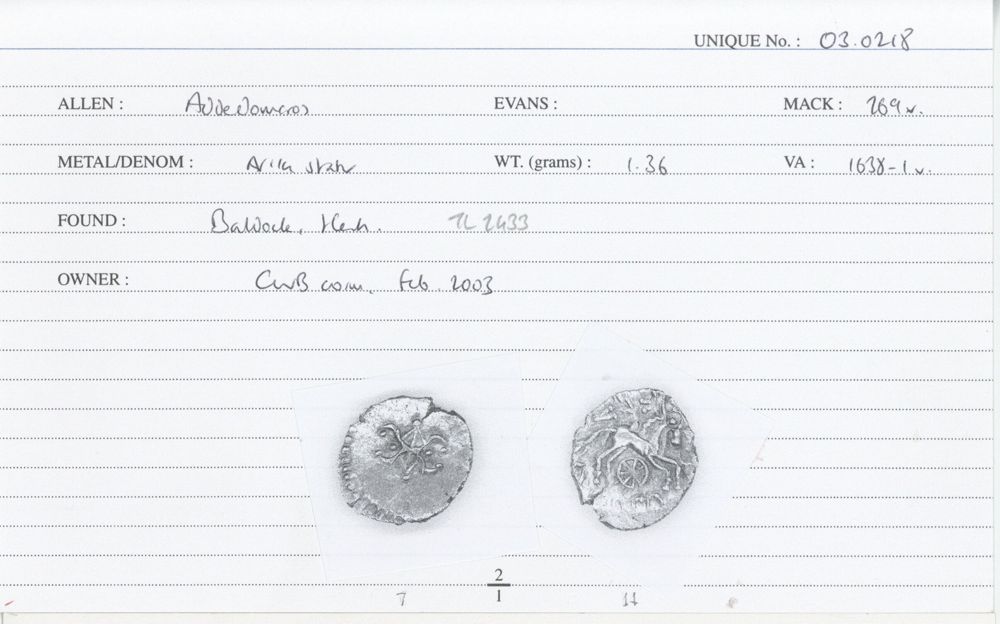 UNIQUE No. : 03.0218
ALLEN : Addedomaros EVANS : MACK : 269 v.
METAL/DENOM : WT. (grams) : 1.36 VA : 1638-1 v.
FOUND : Baldock, Herts. TL 2433
OWNER : CWB coin, Feb. 2003
2
1
7 11